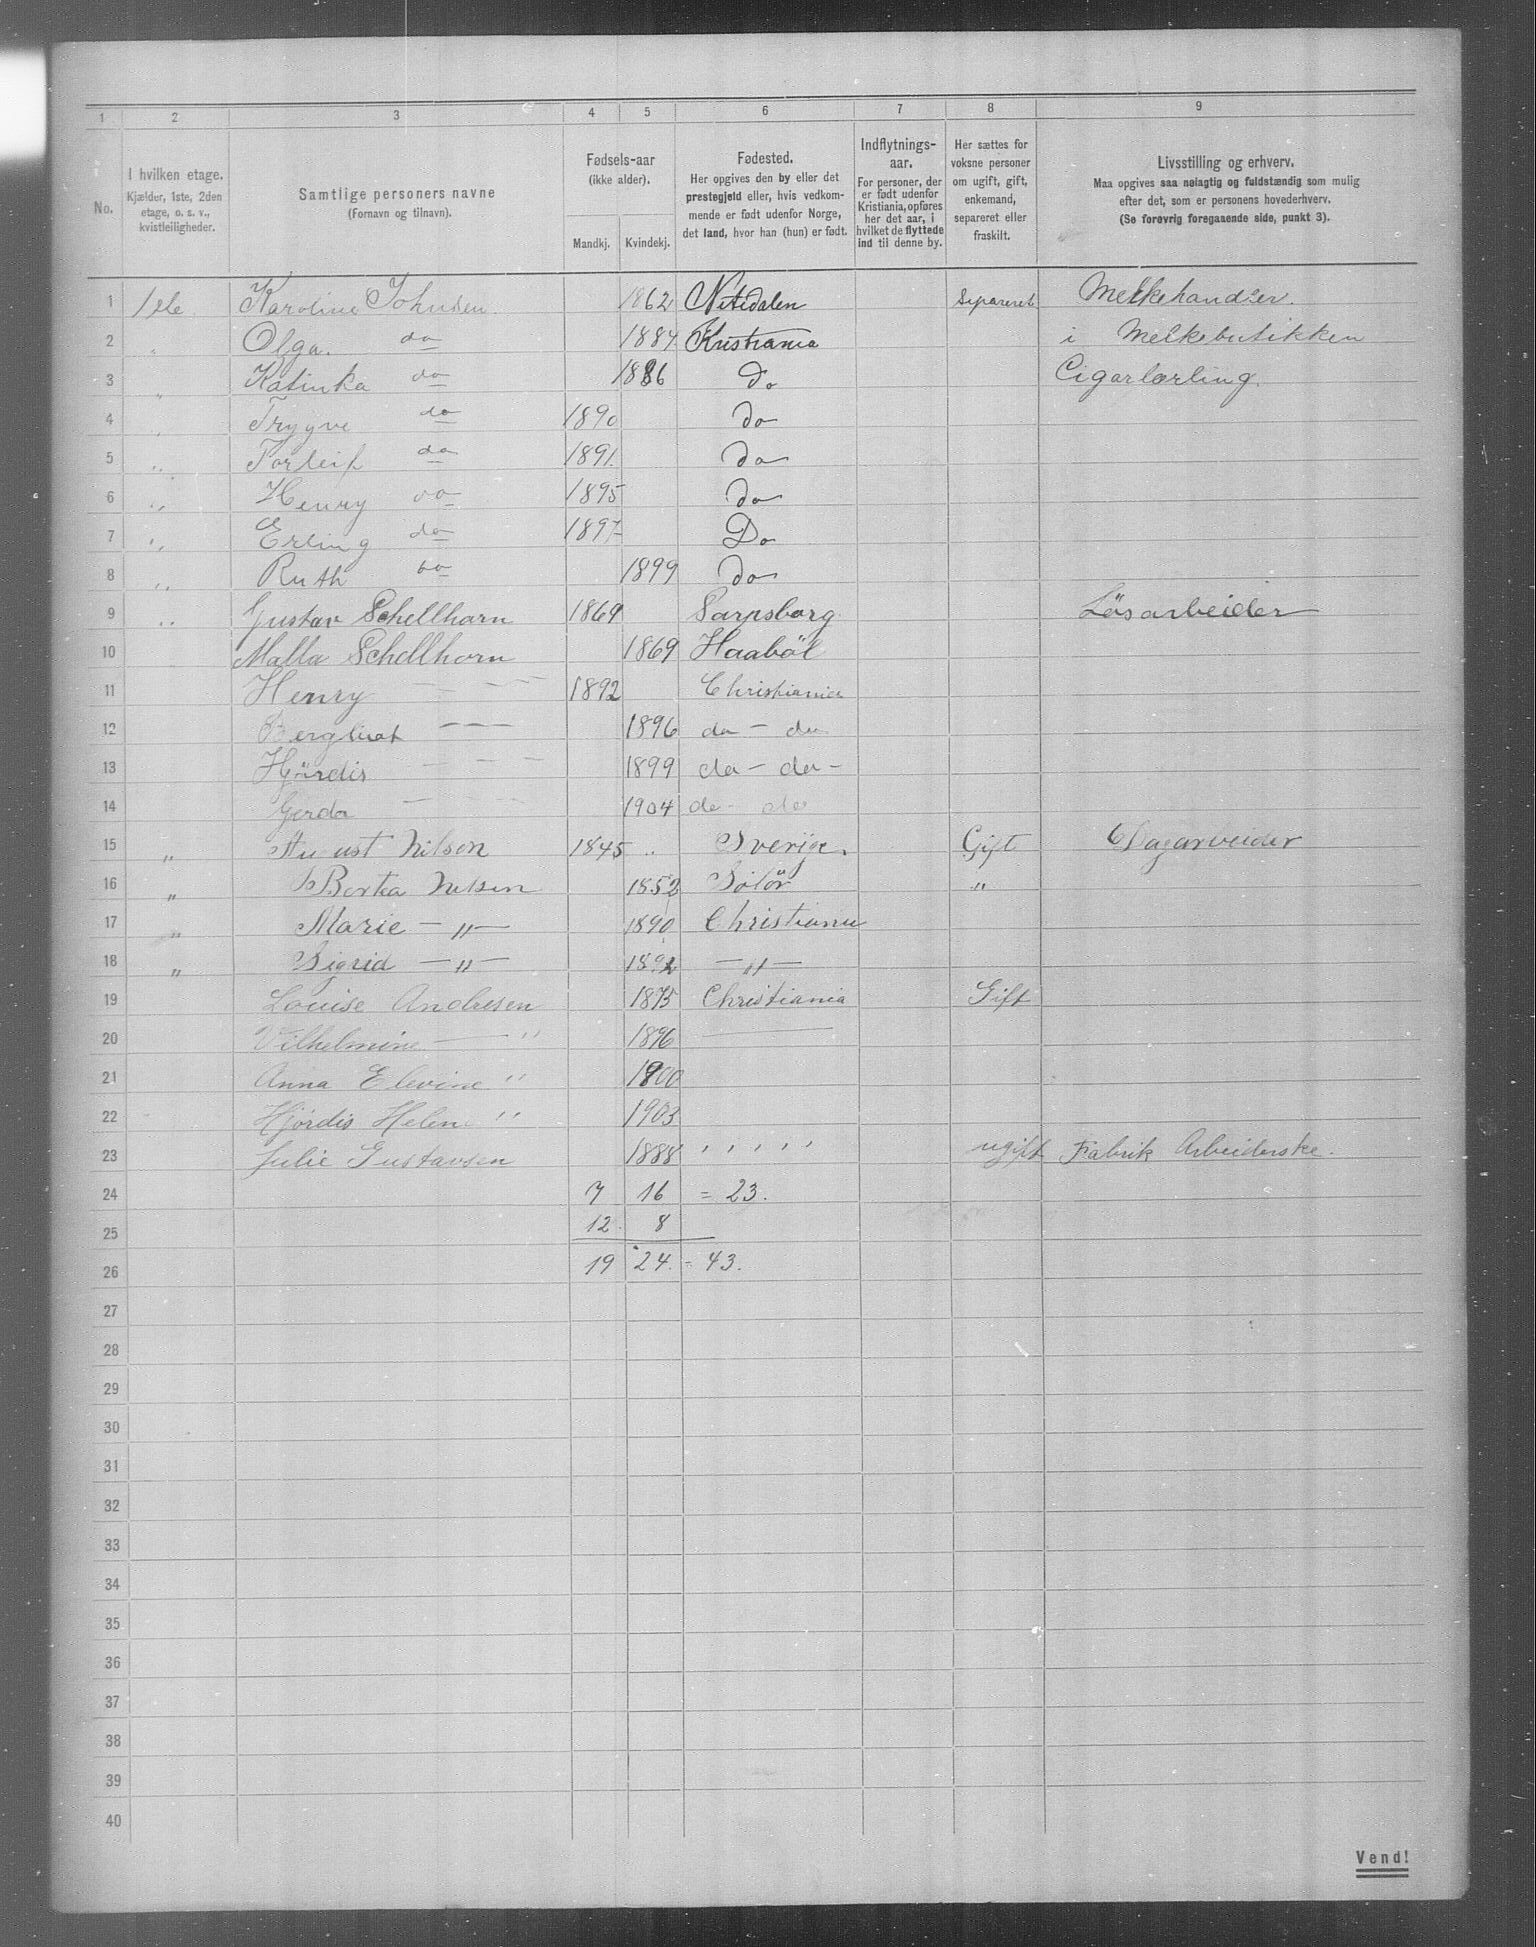 1 2 3 4 5 6 7 8 9
No.
I hvilken etage.
Kjælder, 1ste, 2den
etage, o. s. v.,
kvistleiligheder.
Samtlige personers navne
(Fornavn og tilnavn).
Fødsels-aar
(ikke alder).
Mandkj. Kvindekj.
Fødested.
Her opgives den by eller det
prestegjeld eller, hvis vedkom-
mende er født udenfor Norge,
det land, hvor han (hun) er født.
Indflytnings-
aar.
For personer, der
er født udenfor
Kristiania, opføres
her det aar, i
hvilket de flyttede
ind til denne by.
Her sættes for
voksne personer
om ugift, gift,
enkemand,
separeret eller
fraskilt.
Livsstilling og erhverv.
Maa opgives saa nøiagtig og fuldstændig som mulig
efter det, som er personens hovederhverv.
(Se forøvrig foregaaende side, punkt 3).
1 1ste Karoline Johnsen 1862 Nitedalen Separeret Melkehandler.
2 " Olga. do 1884 Kristiania i Melkebutikken
3 " Katinka do 1886 Do Cigarlærling.
4 " Trygve do 1890 do
5 " Torleif do 1891. do
6 " Henry do 1895 do
7 " Erling do 1897 Do
8 " Ruth do 1899 do
9 " Gustav Schellhorn 1869 Sarpsborg Løsarbeider
10 Malla Schellhorn 1869 Haabøl
11 Henry — — 1892 Christiania
12 Bergliot — — — 1896 do — do
13 Hjördis — — — 1899 do — do —
14 Gerda — — 1904 do — do
15 " August Nilsen 1845 " Sverije. Gift Dagarbeider
16 " Berta Nilsen 1852 Solör "
17 " Marie — " — 1890 Christiania
18 " Sigrid — " — — " —
19 Louise Andresen 1875 Christiania Gift
20 Vilhelmine — " 1896 —
21 Anna Elevine " 1900
22 Hjørdis Helene " 1903
23 Julie Gustavsen 1888 " " " ugift Fabrik Arbeiderske.
24 7 16 = 23.
25 12. 8
26 19 24. = 43.
27
28
29
30
31
32
33
34
35
36
37
38
39
40
Vend!